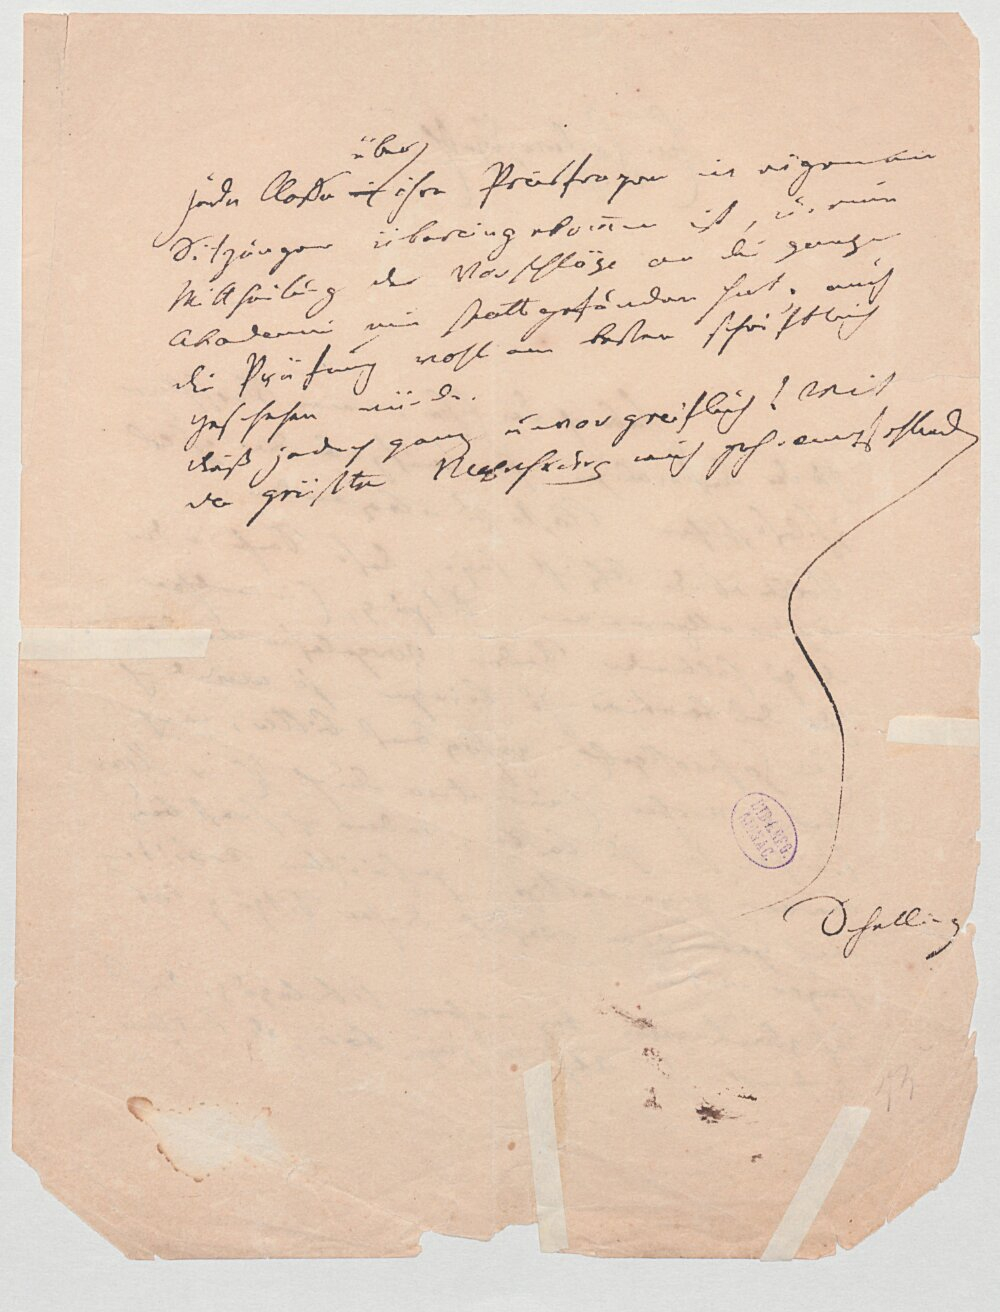 über
jede Classe in ihre Preisfragen in eigenen
Sitzungen übereingekom̅en ist, u. eine
Mittheilung der Vorschläge an die ganze
Akademie nie stattgefunden hat, auch
die Prüfung wohl am besten schriftlich
geschehen würde.
Dieß jedoch ganz unvorgreiflich! Mit
der größten Hochachtung mich gehorsamst empfehlend
Schelling